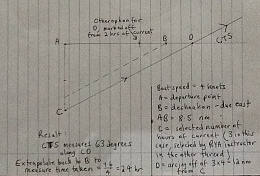 Other option for
D, marked off
from 2 hrs of current
A
3
B
D
CTS
C
Boat speed = 4 knots
A = departure point
B = destination - due east
AB = 8.5 nm
C = selected number of
hours of current (3 in this
case, selected by RYA instructor
in the other thread)
D = arcing off of 3x4 = 12 nm
from C
Result
CTS measures 63 degrees
along CD
Extrapolate back to B to
measure time taken =